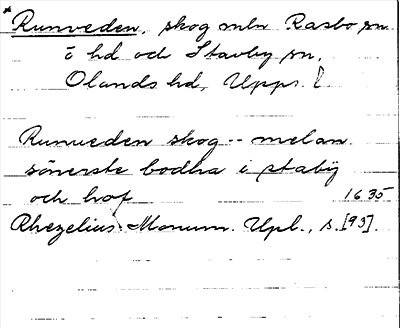 * Runveden, skog mln Rasbo sn
i hd och Stavby sn,
Olands hd, Upps. l.
Runueden skog -- melan
sönerste bodha i stabÿ
och hof 1635
Rhezelius Monum. Upl., s. [93].